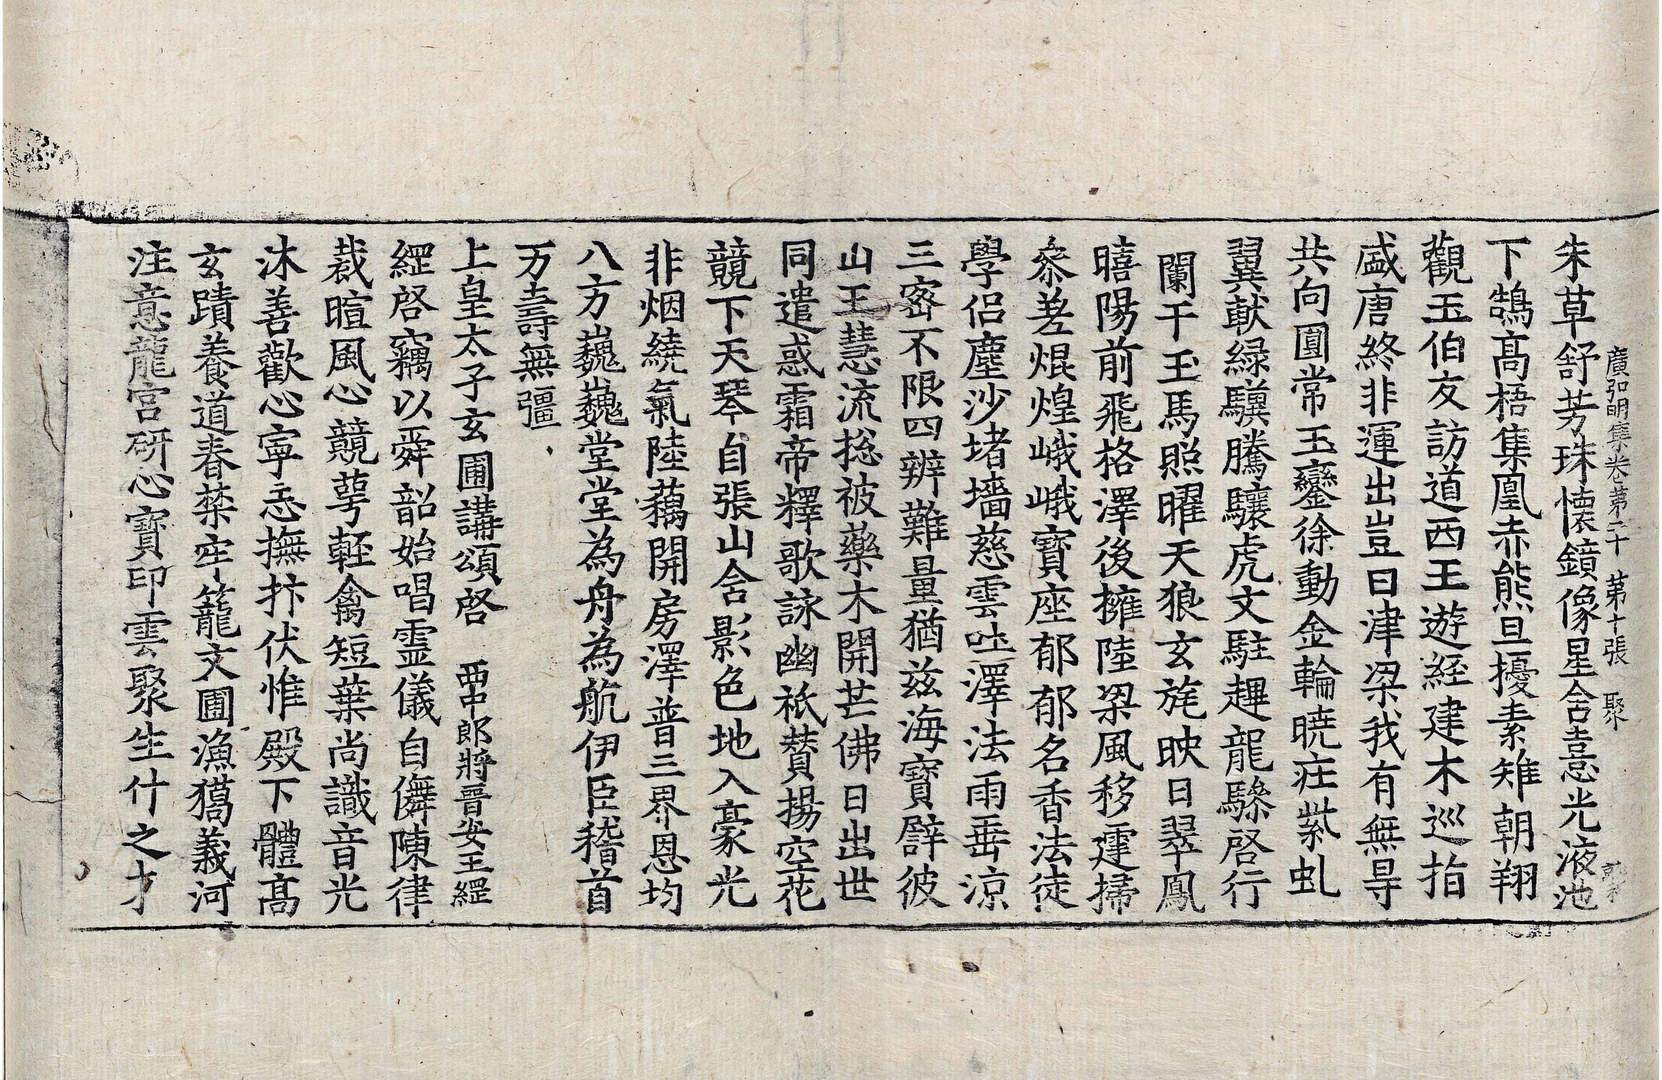 廣弘明集卷第二十 第十張 聚
朱草舒芳珠懷鏡像星含憙光液池
下鵠髙梧集凰赤熊旦擾素雉朝翔
觀玉伯友訪道西王遊經建木巡拍
盛唐終非運出豈曰津梁我有無㝵
共向圓常玉鑾徐動金輪曉莊紫虬
翼猷緑驥騰驤虎文駐蹕龍驂啓行
闌干玉馬照曜天狼玄旄映日翠鳳
晞陽前飛格澤後擁陸梁風移霆掃
叅差焜煌峨峨寶座郁郁名香法徒
學侶塵沙堵墻慈雲吐澤法雨垂涼
三密不限四辨難量猶兹海寶譬彼
山王慧流揔被藥木開芒佛日出世
同遣惑霜帝釋歌詠幽祇賛揚空花
競下天琴自張山含影色地入豪光
非烟繞氣陸藕開房澤普三界恩均
八方巍巍堂堂為舟為航伊臣稽首
万壽無彊
上皇太子玄圃講頌啓 西中郎將晉安王綱
綱啓竊以舜韶始唱靈儀自儛陳律
裁暄風心競萼輕禽短葉尚識音光
沐善歡心寜忘撫抃伏惟殿下體髙
玄蹟養道春禁牢籠文圃漁獵義河
注意龍宮研心寶印雲聚生什之才